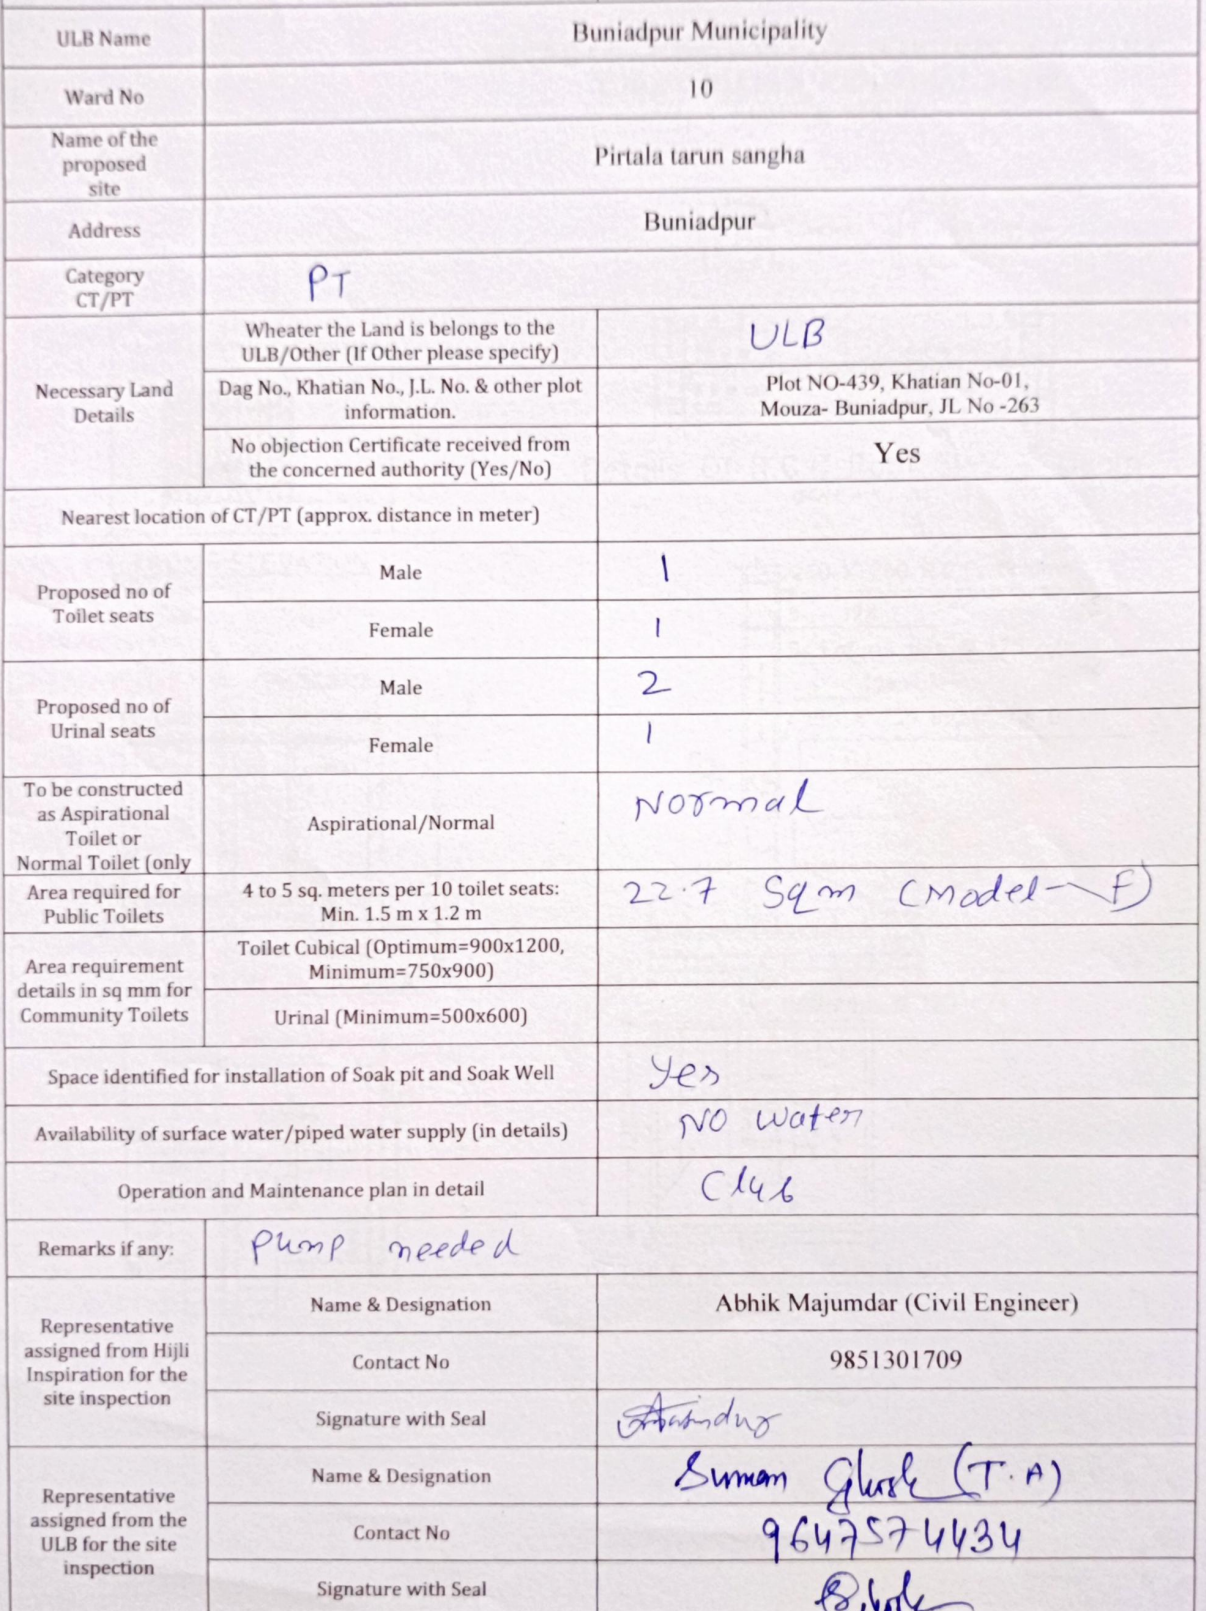 ULB Name
Buniadpur Municipality
Ward No
10
Name of the
proposed
site
Pirtala tarun sangha
Address
Buniadpur
Category
CT/PT
PT
Necessary Land
Details
Wheater the Land is belongs to the
ULB/Other (If Other please specify)
ULB
Dag No., Khatian No., J.L. No. & other plot
information.
Plot NO-439, Khatian No-01,
Mouza- Buniadpur, JL No -263
No objection Certificate received from
the concerned authority (Yes/No)
Yes
Nearest location of CT/PT (approx. distance in meter)
Proposed no of
Toilet seats
Male
1
Female
1
Proposed no of
Urinal seats
Male
2
Female
1
To be constructed
as Aspirational
Toilet or
Normal Toilet (only
Aspirational/Normal
Normal
Area required for
Public Toilets
4 to 5 sq. meters per 10 toilet seats:
Min. 1.5 m x 1.2 m
22.7 Sqm (Model-F)
Area requirement
details in sq mm for
Community Toilets
Toilet Cubical (Optimum=900x1200,
Minimum=750x900)
Urinal (Minimum=500x600)
Space identified for installation of Soak pit and Soak Well
Yes
Availability of surface water/piped water supply (in details)
NO water
Operation and Maintenance plan in detail
Club
Remarks if any:
Pump needed
Representative
assigned from Hijli
Inspiration for the
site inspection
Name & Designation
Abhik Majumdar (Civil Engineer)
Contact No
9851301709
Signature with Seal
Representative
assigned from the
ULB for the site
inspection
Name & Designation
Suman Ghosh (T.A)
Contact No
9647574434
Signature with Seal